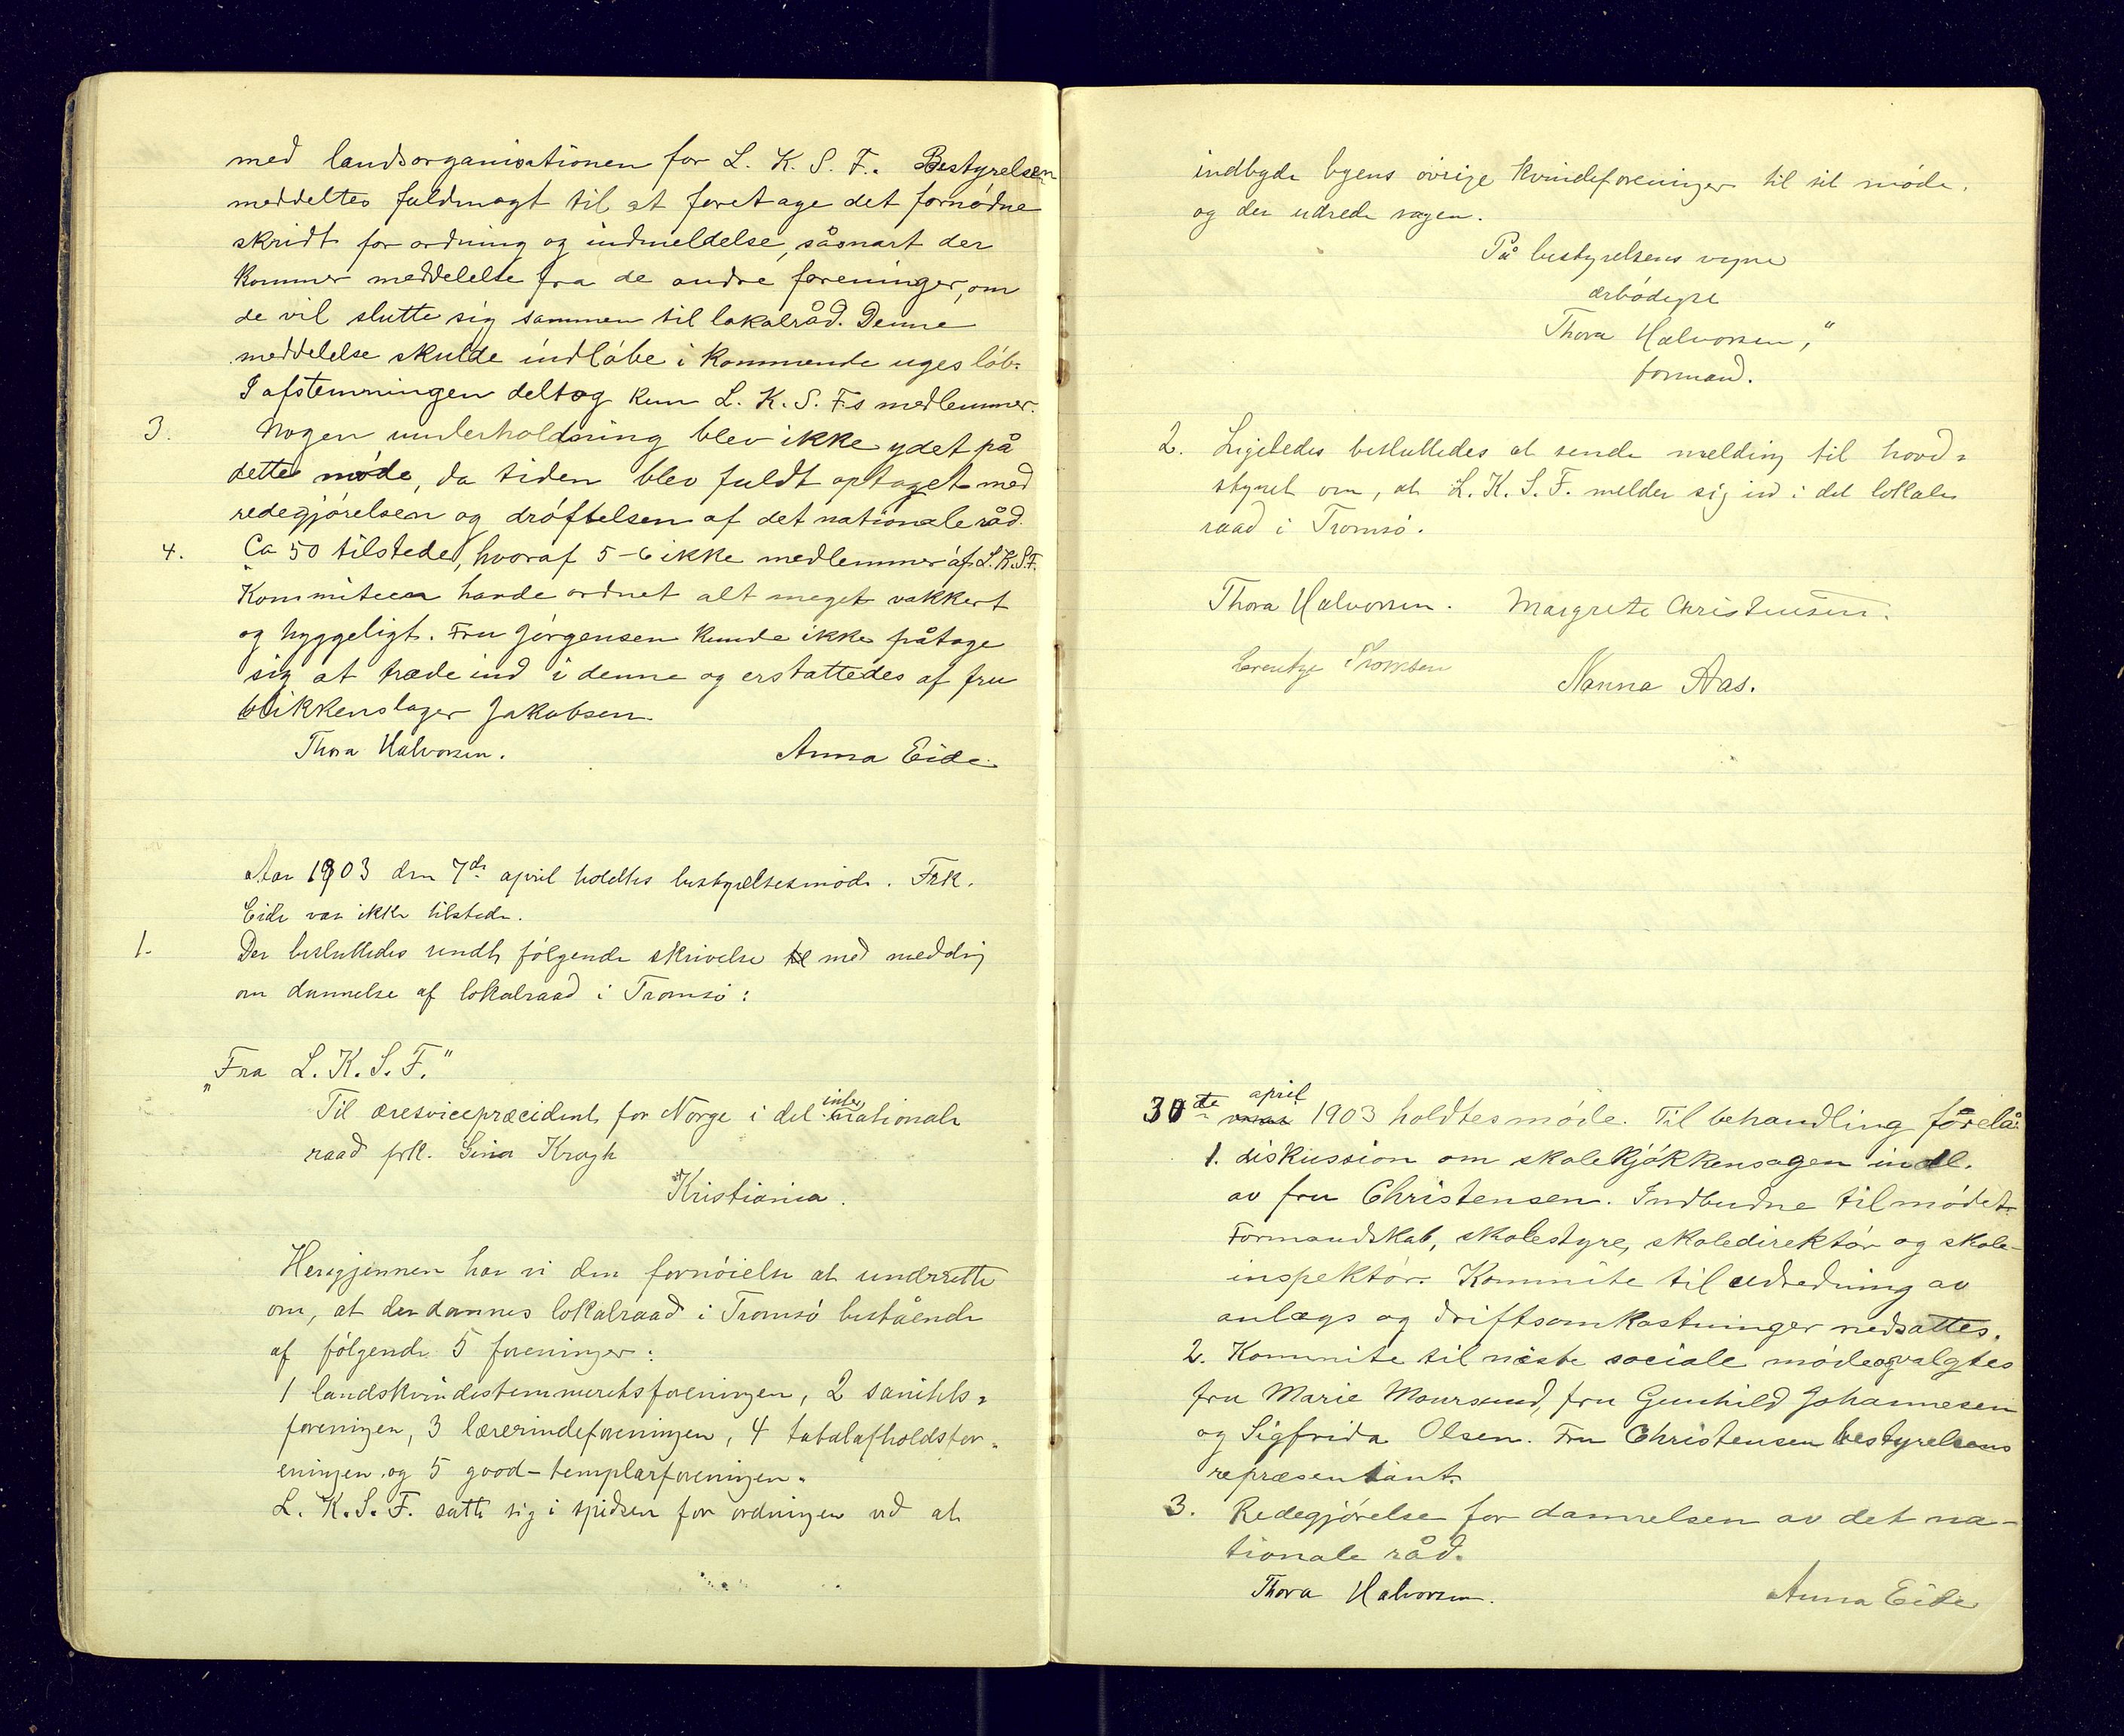 med landsorganisationen for L. K. S. F. Bestyrelsen
meddeltes fuldmagt til at foretage det fornødne
skridt for ordning og indmeldelse, såsnart der
kommer meddelelse fra de andre foreninger, om
de vil slutte sig sammen til lokalråd. Denne
meddelelse skulde indløbe i kommende uges løb.
I afstemningen deltog kun L. K. S. F.s medlemmer.
3. Nogen underholdning blev ikke ydet på
dette møde, da tiden blev fuldt optaget med
redegjørelsen og drøftelsen af det nationale råd.
4. Ca 50 tilstede, hvoraf 5-6 ikke medlemmer af L.K.S.F.
Kommiteen havde ordnet alt meget vakkert
og hyggeligt. Fru Jørgensen kunde ikke påtage
sig at træde ind i denne og erstattedes af fru
blikkenslager Jakobsen.
Thora Halvorsen. Anna Eide.
Aar 1903 den 7de april holdtes bestyrelsesmøde. Frk.
Eide var ikke tilstede.
1. Der besluttedes sendt følgende skrivelse til med meddig
om dannelse af lokalraad i Tromsø:
„Fra L. K. S. F."
Til æresvicepræcident for Norge i det internationale
raad frk. Gina Krogh
Kristiania.
Herigjennem har vi den fornøielse at underrette
om, at der dannes lokalraad i Tromsø bestående
af følgende 5 foreninger:
1 landskvindestemmeretsforeningen, 2 sanitets-
foreningen, 3 lærerindeforeningen, 4 totalafholdsfor-
eningen og 5 good-templarforeningen.
L. K. S. F. satte sig i spidsen for ordningen ved at
indbyde byens øvrige kvindeforeninger til sit møde,
og der udrede sagen.
På bestyrelsens vegne
ærbødigst
Thora Halvorsen,"
formand.
2. Ligeledes besluttedes at sende melding til hovd-
styret om, at L. K. S. F. melder sig ind i det lokale
raad i Tromsø.
Thora Halvorsen. Margrete Christensen.
Lorentze Thomsen Nanna Aas.
30te april 1903 holdtes møde. Til behandling forelå:
1. diskussion om skolekjøkkensagen indl.
av fru Christensen. Indbudne til mødet
Formandskab, skolestyre, skoledirektør og skole-
inspektør. Kommite til udredning av
anlægs og driftsomkostninger nedsattes.
2. Kommite til næste sociale møde og valgtes
fru Marie Moursund, fru Gunhild Johannesen
og Sigfrida Olsen. Fru Christensen bestyrelsens
repræsentant.
3. Redegjørelse for dannelsen av det na-
tionale råd.
Thora Halvorsen. Anna Eide